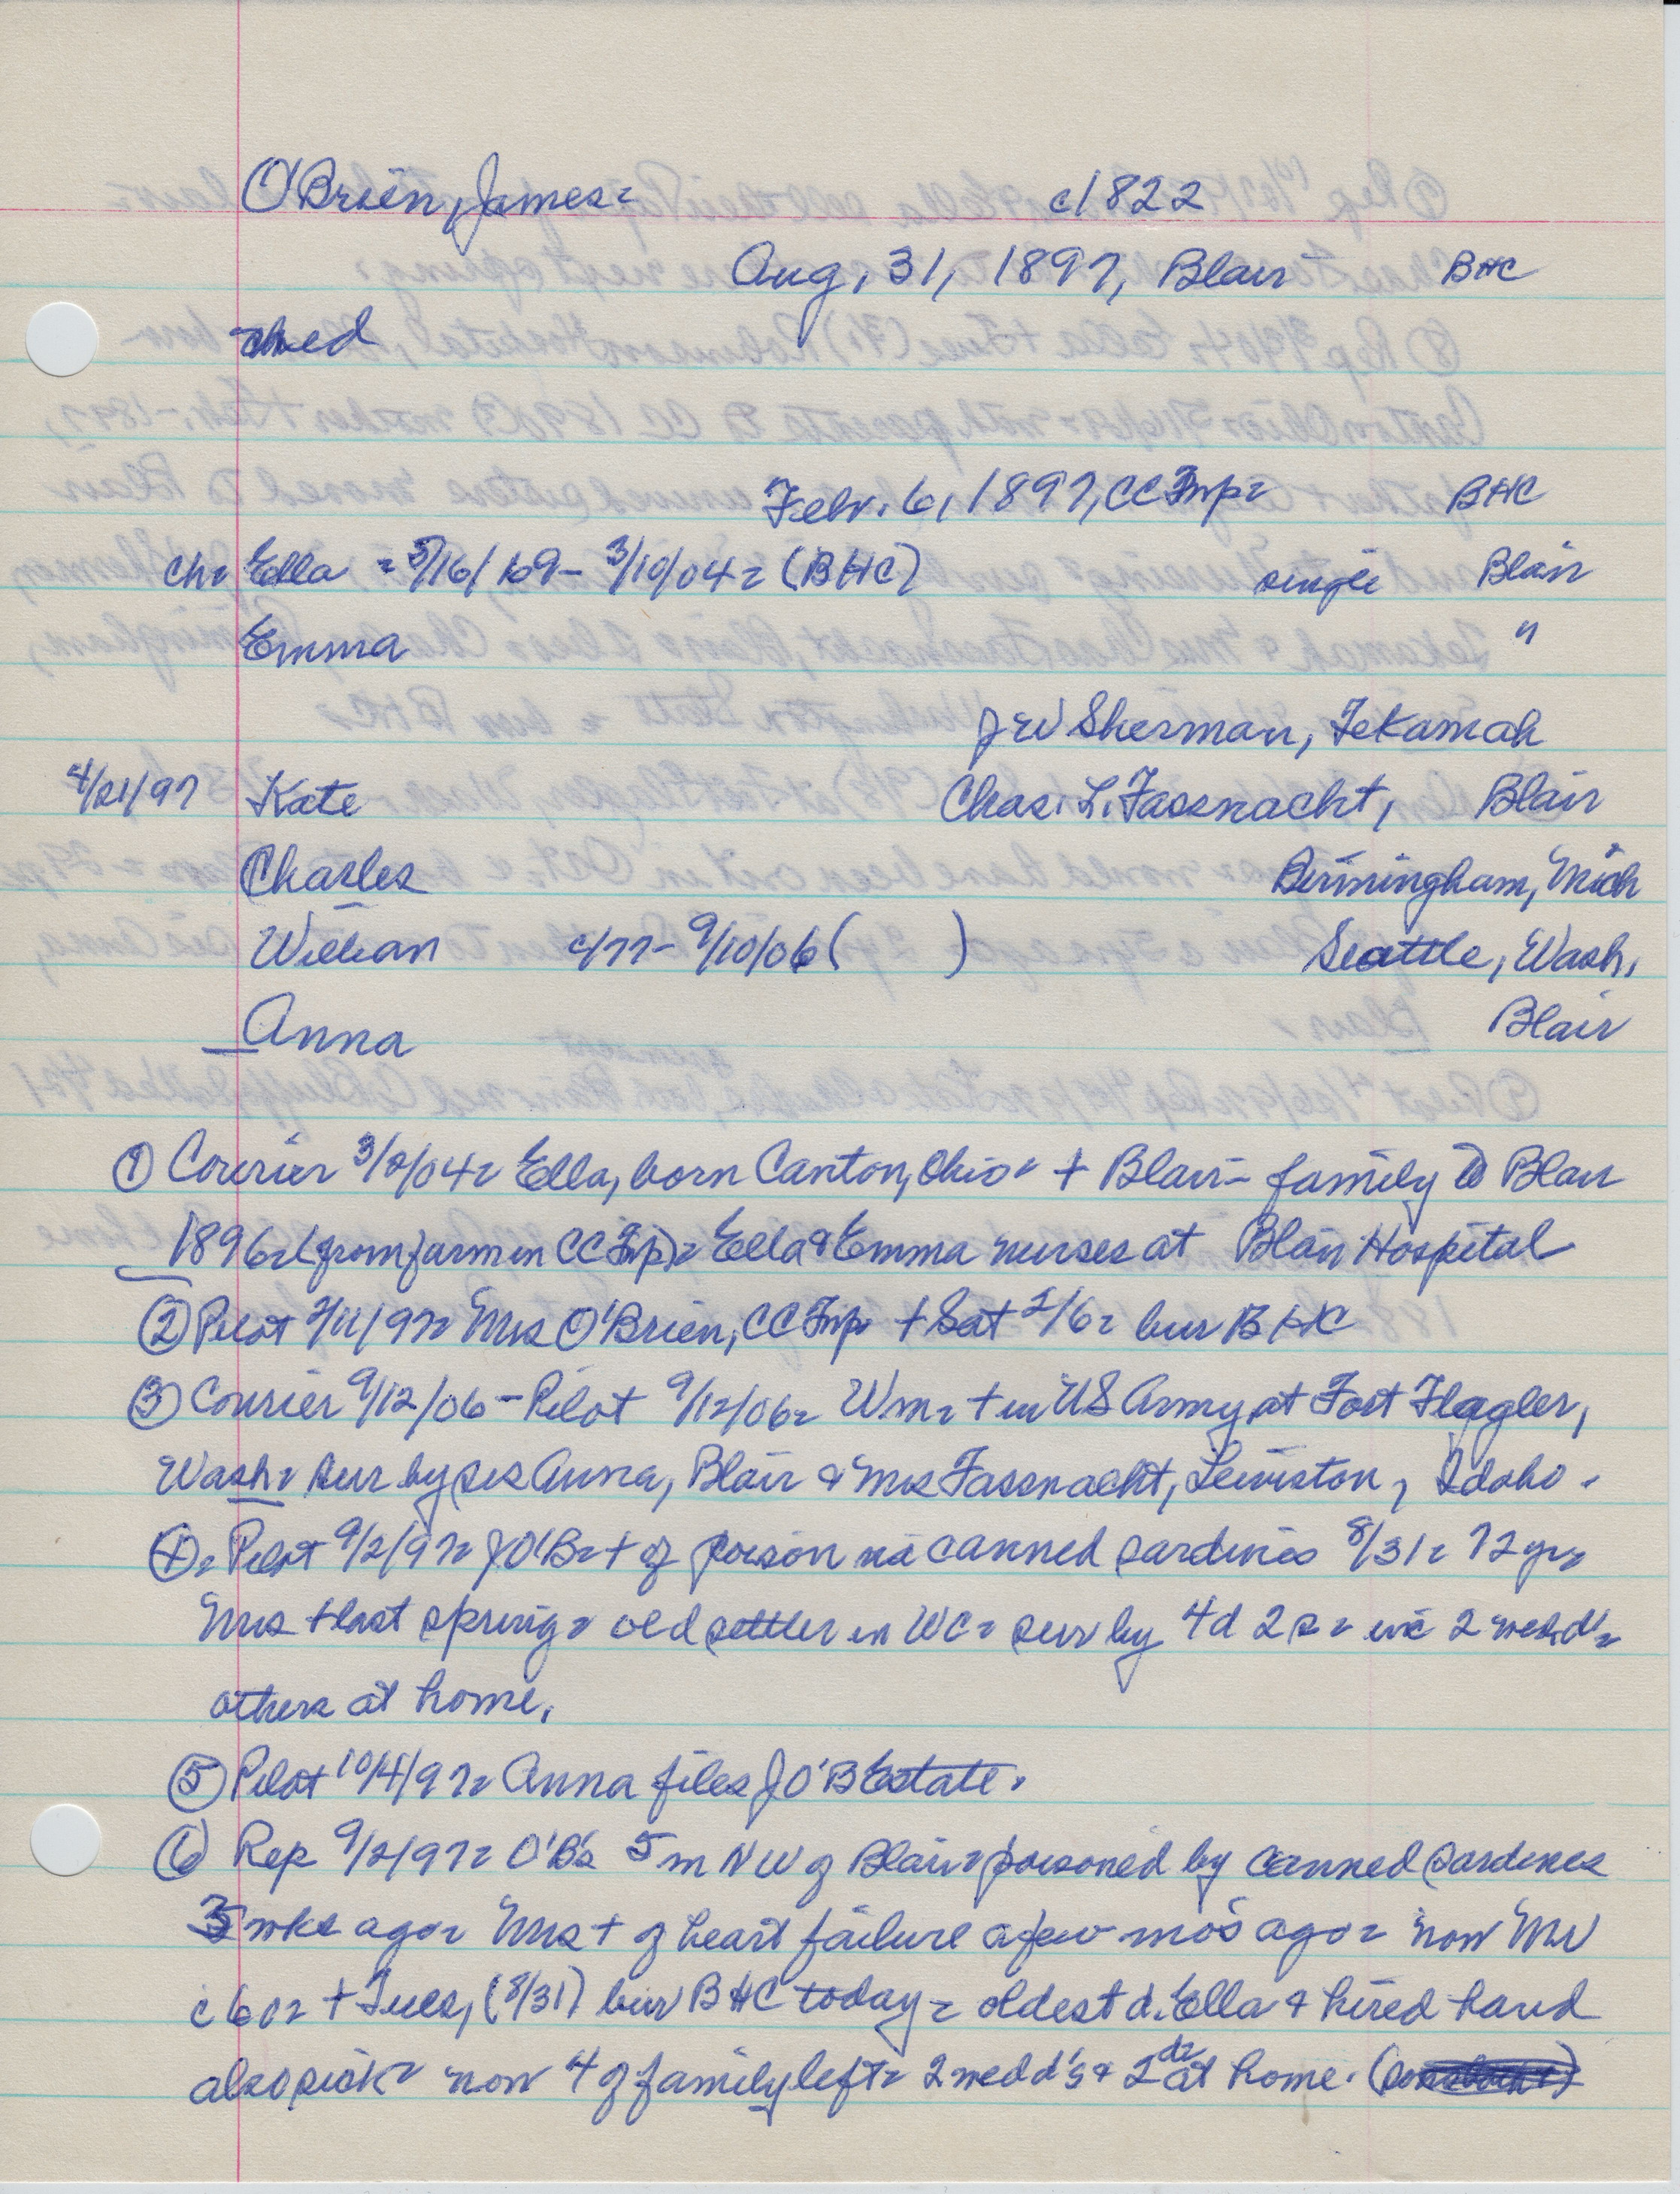 O'Brien, James= c1822
Aug. 31, 1897, Blair BHC
med
Febr. 6, 1897, CC Twp= BHC
ch= Ella = 5/16/69 - 3/10/04= (BHC) single Blair
Emma "
J W Sherman, Tekamah
4/21/97 Kate Chas. L. Fassnacht, Blair
Charles Birmingham, Mich
William c/77- 9/10/06 ( ) Seattle, Wash.
Anna Blair
① Courier 3/10/04= Ella, born Canton, Ohio= + Blair- family to Blair
1896= (from farm in CC Twp)= Ella & Emma nurses at Blair Hospital
② Pilot 2/11/97= Mrs O'Brien, CC Twp + Sat 2/6= bur BHC
③ Courier 9/12/06 - Pilot 9/12/06= Wm= + in US Army at Fort Flagler,
Wash= sur by sis Anna, Blair & Mrs Fassnacht, Lewiston, Idaho.
④= Pilot 9/2/97= J O'B= + of poison via canned sardines 8/31= 72 yr=
Mrs + last spring= old settler in WC= surv by 4d 2s= inc 2 wed d=
others at home.
⑤ Pilot 10/14/97= Anna files J O'B Estate.
⑥ Rep 9/2/97= O'B's 5 m NW of Blair= poisoned by canned sardines
3 wks ago= Mrs + of heart failure a few mos ago= now Mr
c 60= + Tues, (8/31) bur BHC today= oldest d. Ella & hired hand
also sick= now 4 of family left= 2 wed d's & 2 d= at home.